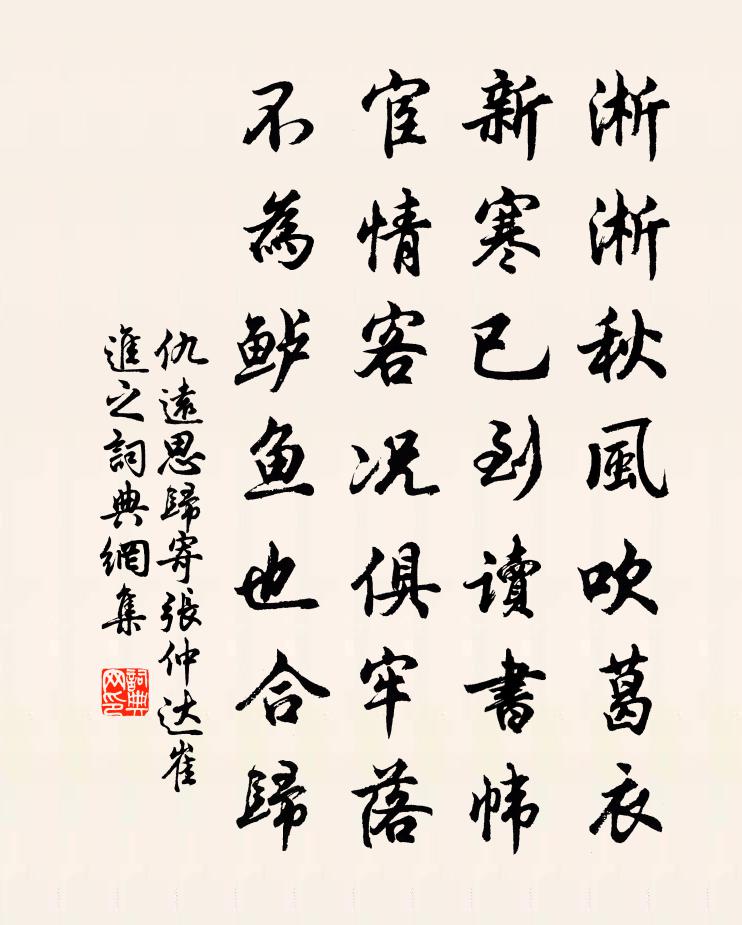 淅淅秋風吹葛衣
新寒已到讀書帏
宦情客况俱牢落
不為鲈鱼也合歸
仇遠思歸寄張仲达崔
進之詞典網集
詞典网印